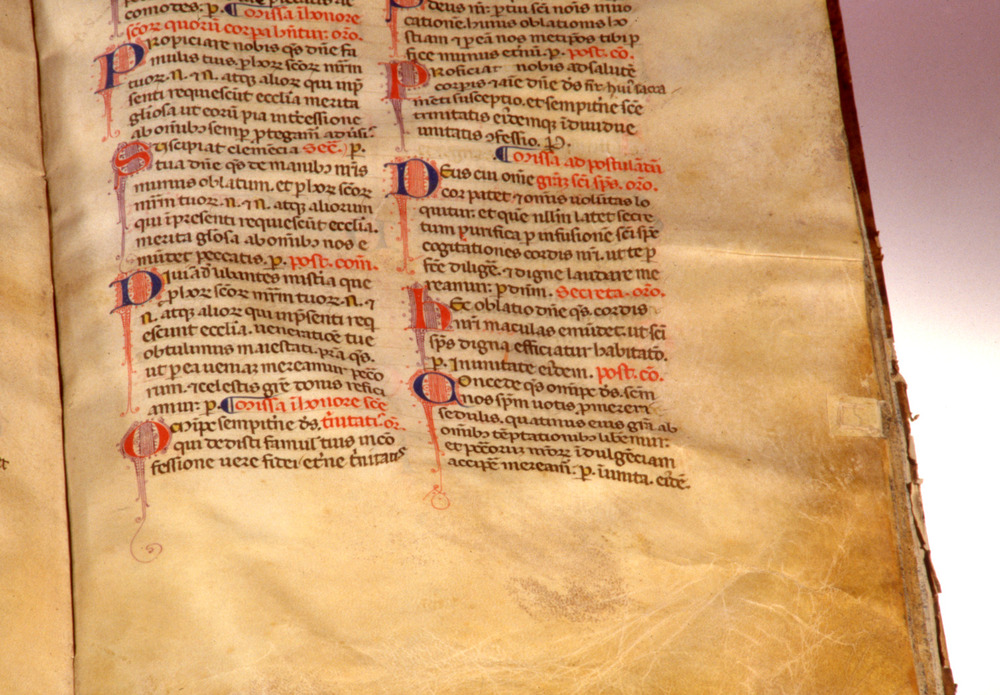 comotes. p. Missa i honore
scorz quorū corpa hñtur. oro.
Propiciare nobis qs dne fa
mulis tuis. p horz scorz mrm
tuorz .N. ⁊ .N. atqz aliorz qui inp
senti requiescūt ecclia merita
gliosa ut eorū pia intercessione
ab omibz semp ptegam
Suscipiat clemēcia Sec. p.
tua dne qs de manibz nris
munus oblatum. et p horz scorz
mrm tuorz .N. ⁊ .N. atqz aliorum
qui ī presenti requiescūt ecclia.
merita glosa ab omibz nos e
mūdet peccatis. p. post. com.
Diuīa libantes mistia que
p horz scorz mrm tuorz .N. ⁊
.N. atqz aliorz qui inpsenti req
escunt ecclia. ueneratiōe tue
obtulimus maiestati. pra qs.
ut p ea ueniam mereamur pcco
rum. ⁊ celestis gre donis refici
amur. p. Missa i honore sce
Omīpc sempitne ds. trinitati. or.
qui dedisti famul' tuis in cō
fessione uere fidei et'ne trinitatis
deus nr. p tui sci nois inuo
catione. huius oblationis ho
stiam ⁊ p eā nos metipos tibi p
fice munus et'nū. p. post. cō.
Proficiat nobis ad salutē
corpis ⁊ aīe dne ds nr. hui' sacra
mēti susceptio. et sempitne sce
trinitatis ei'demqz īdiuidue
unitatis ↄfessio. p.
Missa ad postulādā
Deus cui om̄e grāz sci sps. oro.
cor patet ⁊ omīs uolūtas lo
quitur. et quē nllm latet secre
tum purifica p infusionē sci sps
cogitationes cordis nri. ut te p
fc̄e diligē. ⁊ digne laudare me
reamur. p dnm. Secreta. oro.
Hec oblatio dne qs. cordis
nri maculas emūdet. ut sci
sps digna efficiatur habitatō.
p. In unitate ei'dem. post. cō.
Concede qs omipc ds. scm
nos spm uotis pmereri
sedulis. quatinus eius gra ab
omībz tēptationibz liberemur.
et pccorum nrorz īdulgēciam
accipe mereamr. p. i unita. ei'de.